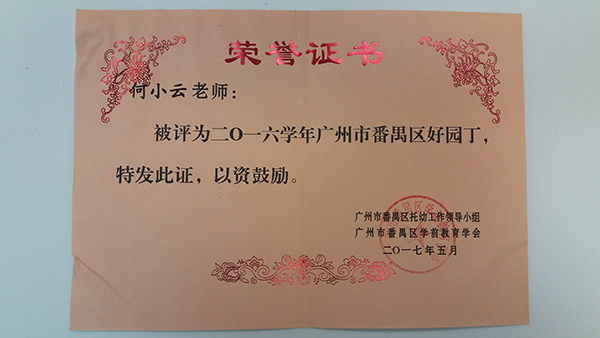 荣誉证书
何小云老师：
被评为二〇一六学年广州市番禺区好园丁，
特发此证，以资鼓励。
广州市番禺区托幼工作领导小组
广州市番禺区学前教育学会
二〇一七年五月